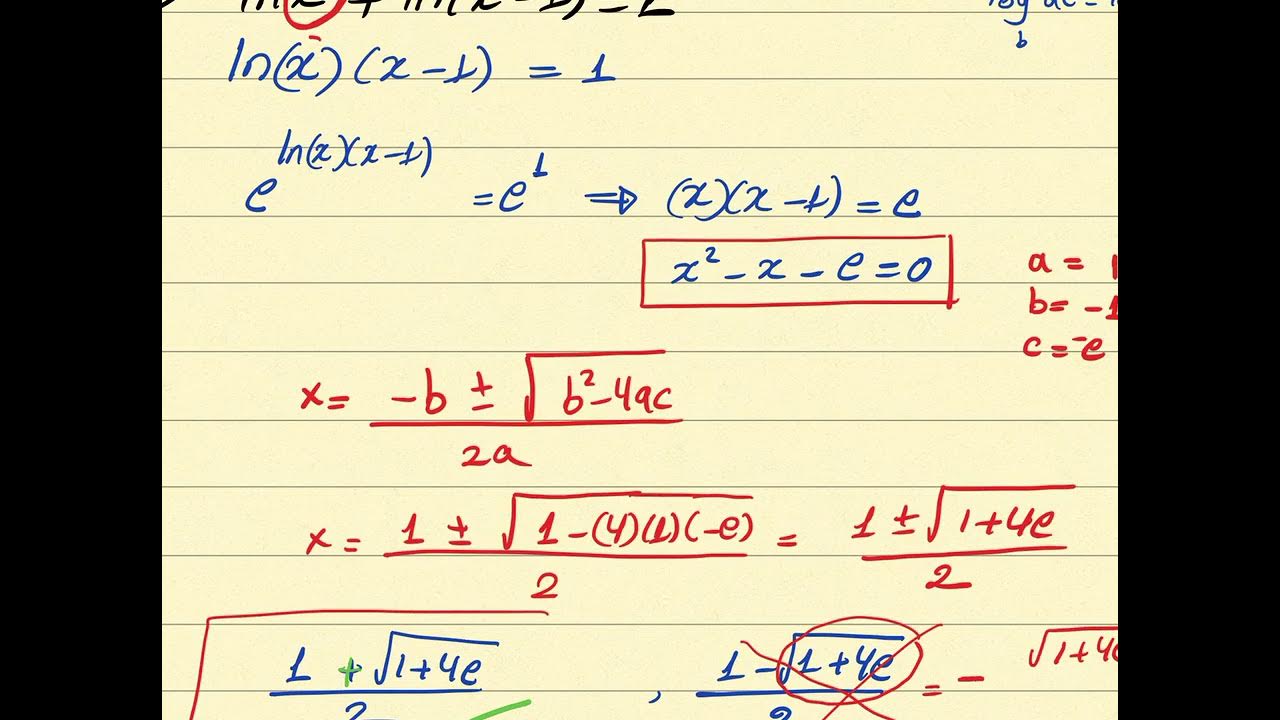 ln(x) + ln(x-1) = 1
ln(x)(x-1) = 1
e^{ln(x)(x-1)} = e^1 ⇒ (x)(x-1) = e
x² - x - e = 0
a = 1
b = -1
c = -e
x = \frac{-b ± √(b² - 4ac)}{2a}
x = \frac{1 ± √(1 - (4)(1)(-e))}{2} = \frac{1 ± √(1+4e)}{2}
\frac{1 + √(1+4e)}{2} , \frac{1 - √(1+4e)}{2} = - √(1+4e